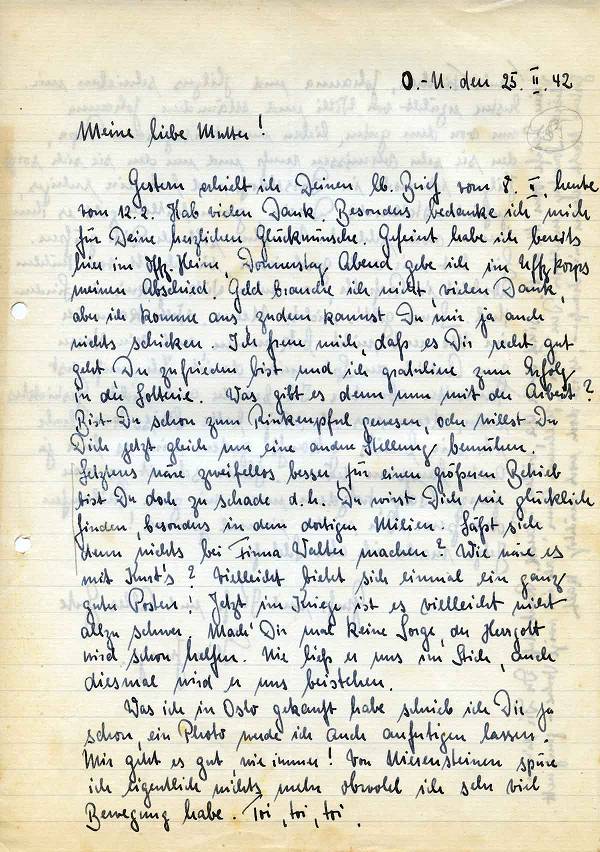 O.-U. den 25. II. 42
Meine liebe Mutter!
Gestern erhielt ich Deinen lb. Brief vom 8. II, heute
vom 12.2. Hab vielen Dank. Besonders bedanke ich mich
für Deine herzlichen Glückwünsche. Gefeiert habe ich bereits
hier im Uffz. Heim, Donnerstag Abend gebe ich im Uffz Korps
meinen Abschied. Geld brauche ich nicht, vielen Dank,
aber ich komme aus, zudem kannst Du mir ja auch
nichts schicken. Ich freue mich, daß es Dir recht gut
geht Du zufrieden bist und ich gratuliere zum Erfolg
in der Lotterie. Was gibt es denn nun mit der Arbeit?
Bist Du schon zum gewesen, oder willst Du
Dich jetzt gleich um eine andre Stellung bemühen.
Letzteres wäre zweifellos besser, für einen größeren Betrieb
bist Du doch zu schade d.h. Du wirst Dich nie glücklich
finden, besonders in dem dortigen Milieu. Läßt sich
denn nichts bei Firma Walter machen? Wie wäre es
mit Kurt's? Vielleicht bietet sich einmal ein ganz
guter Posten! Jetzt im Kriege ist es vielleicht nicht
allzu schwer. Mach' Dir mal keine Sorge, der Herrgott
wird schon helfen. Nie ließ er uns im Stich, auch
diesmal wird er uns beistehen.
Was ich in Oslo gekauft habe schrieb ich Dir ja
schon, ein Photo werde ich auch anfertigen lassen.
Mir geht es gut, wie immer! Von Nierensteinen spüre
ich eigentlich nichts mehr obwohl ich sehr viel
Bewegung habe. Toi, toi, toi.